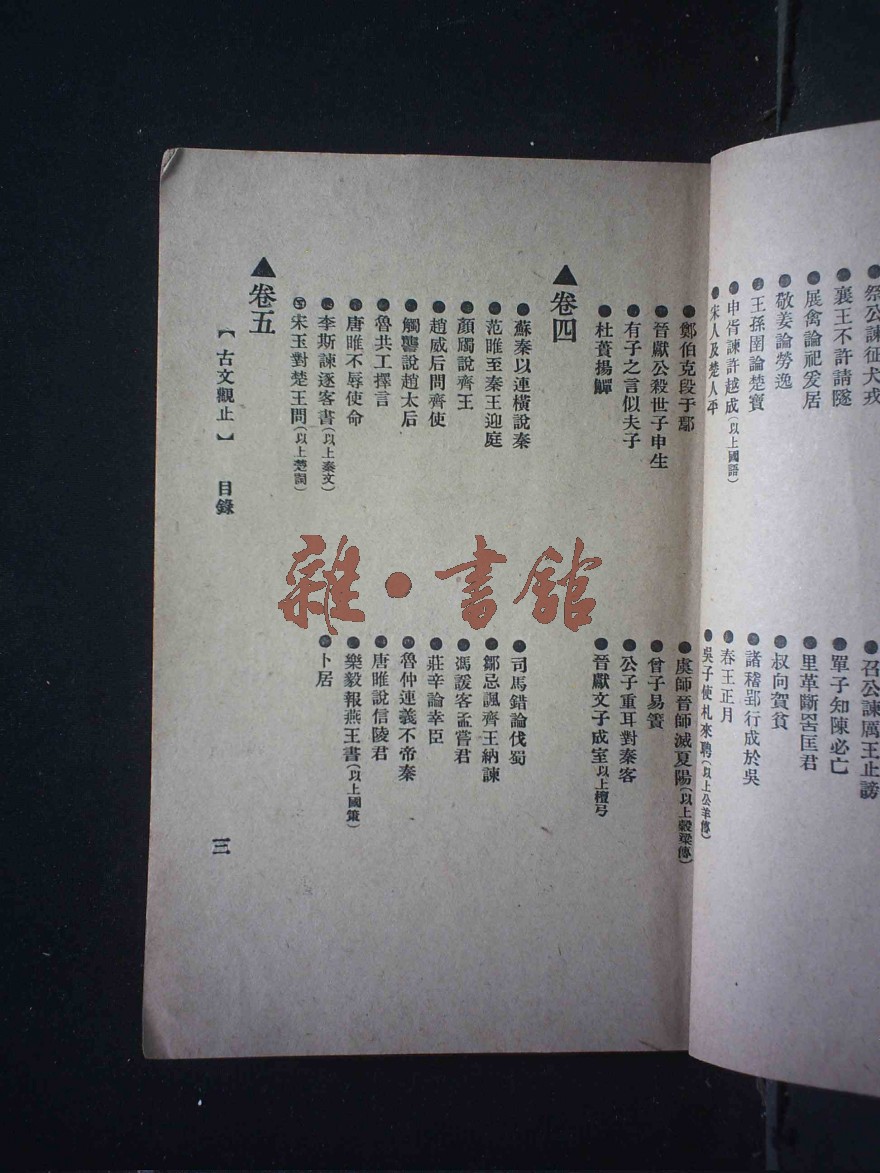 祭公諫征犬戎
召公諫厲王止謗
襄王不許請隧
單子知陳必亡
展禽論祀爰居
里革斷罟匡君
敬姜論勞逸
叔向賀貧
王孫圉論楚寶
諸稽郢行成於吳
申胥諫許越成(以上國語)
春王正月
宋人及楚人平
吳子使札來聘(以上公羊傳)
鄭伯克段于鄢
虞師晉師滅夏陽(以上穀梁傳)
晉獻公殺世子申生
曾子易簀
有子之言似夫子
公子重耳對秦客
杜蕢揚觶
晉獻文子成室以上檀弓
▲卷四
蘇秦以連橫說秦
司馬錯論伐蜀
范睢至秦王迎庭
鄒忌諷齊王納諫
顏斶說齊王
馮諼客孟嘗君
趙威后問齊使
莊辛論幸臣
觸讋說趙太后
魯仲連義不帝秦
魯共工擇言
唐睢說信陵君
唐睢不辱使命
樂毅報燕王書(以上國策)
李斯諫逐客書(以上秦文)
卜居
宋玉對楚王問(以上楚詞)
▲卷五
【古文觀止】 目錄
三
雜·書館